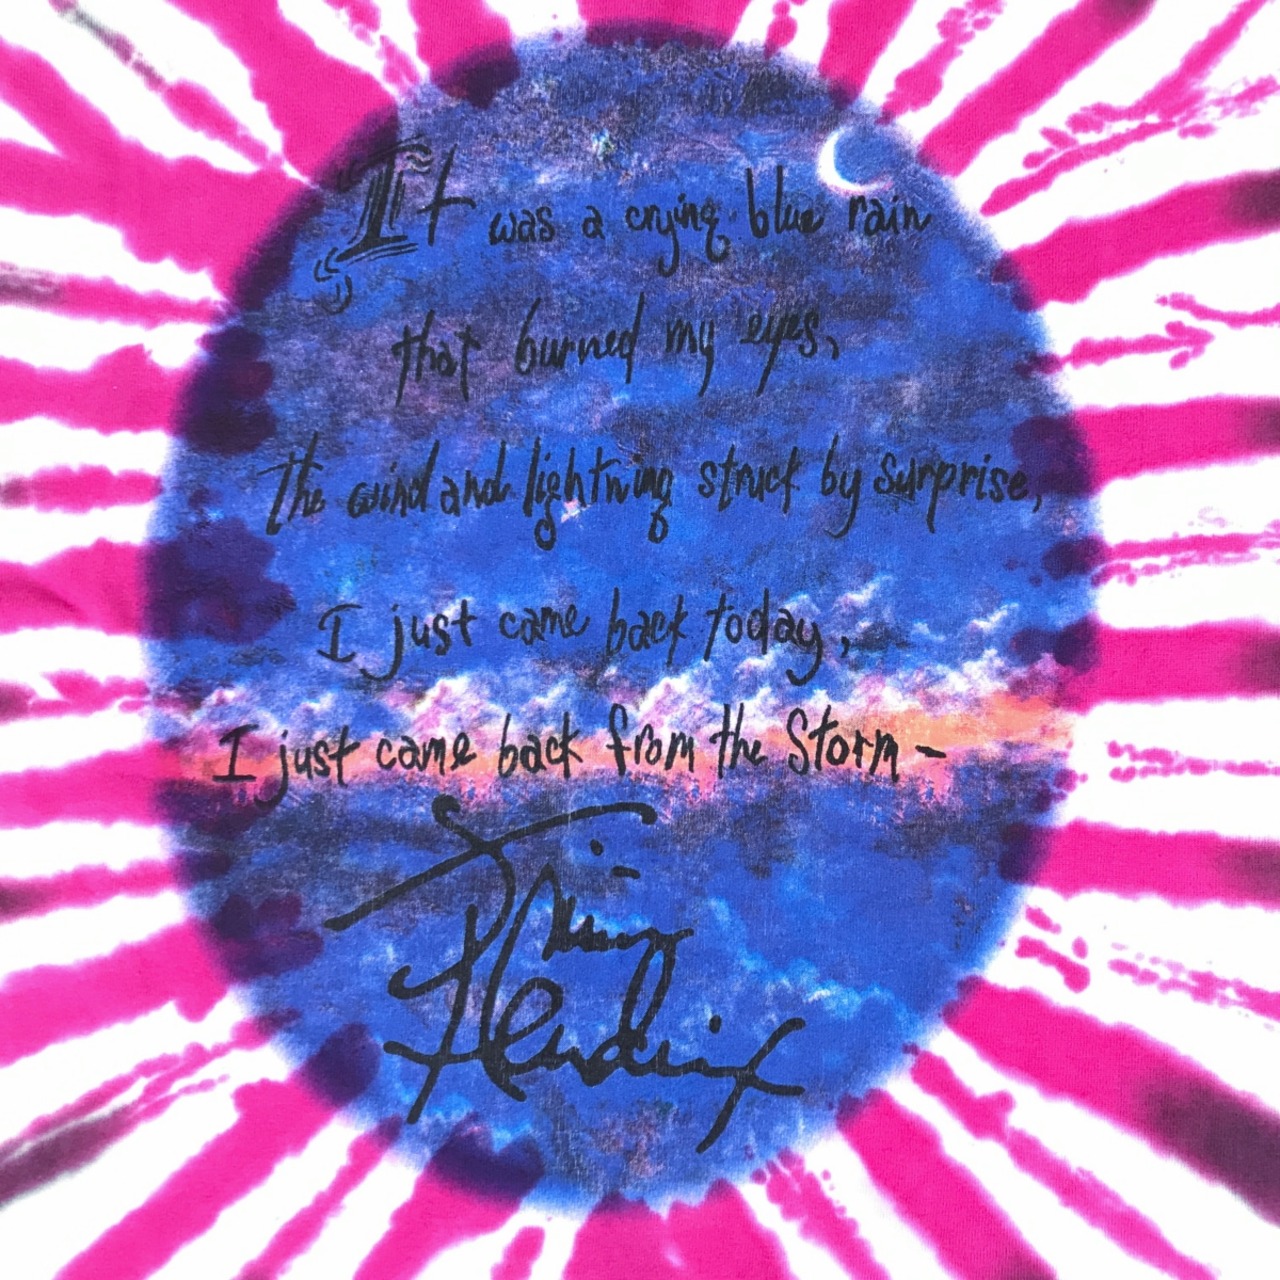 It was a crying blue rain
that burned my eyes,
The wind and lightning struck by Surprise,
I just came back today,
I just came back from the Storm -
Jimi
Hendrix